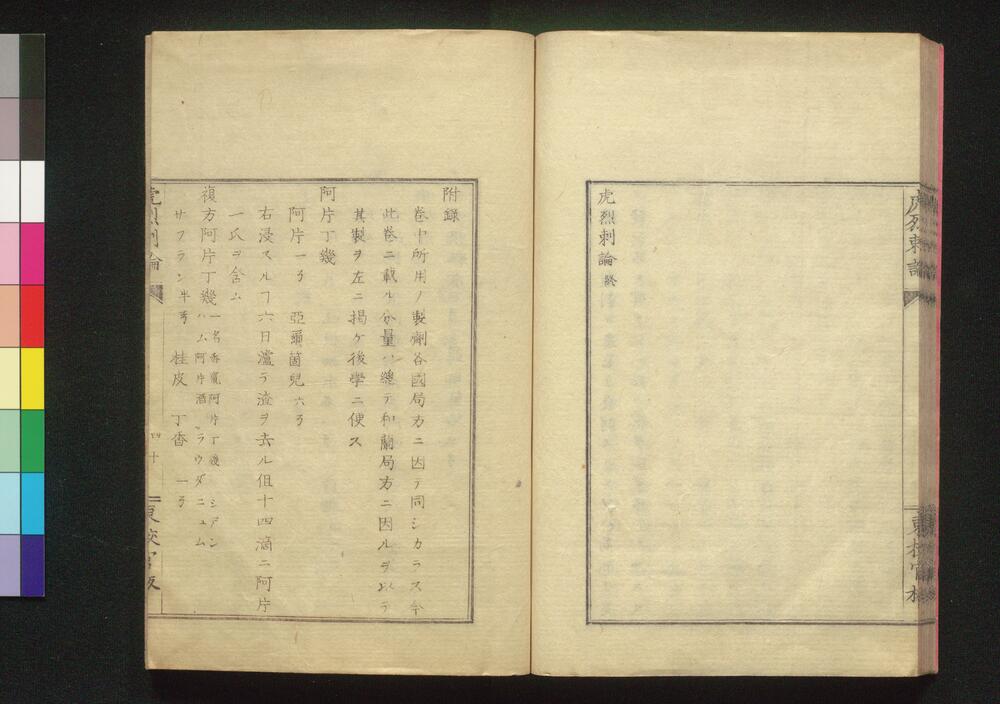 虎烈剌論 終
附録
巻中所用ノ製劑各國局方ニ因テ同シカラス今
此巻ニ載ル分量ハ總テ和蘭局方ニ因ルヲ以テ
其製ヲ左ニ掲ケ後學ニ便ス
阿片丁幾
阿片 一ヲ 亞爾箇兒 六ヲ
右浸スルヿ六日濾テ渣ヲ去ル但十四滴ニ阿片
一氏ヲ含ム
複方阿片丁幾 一名香竄阿片丁幾 シデン
ハム阿片酒 ラウダニュム
サフラン 半ヲ 桂皮 丁香 一ヲ
虎烈剌論 四十 東校官版